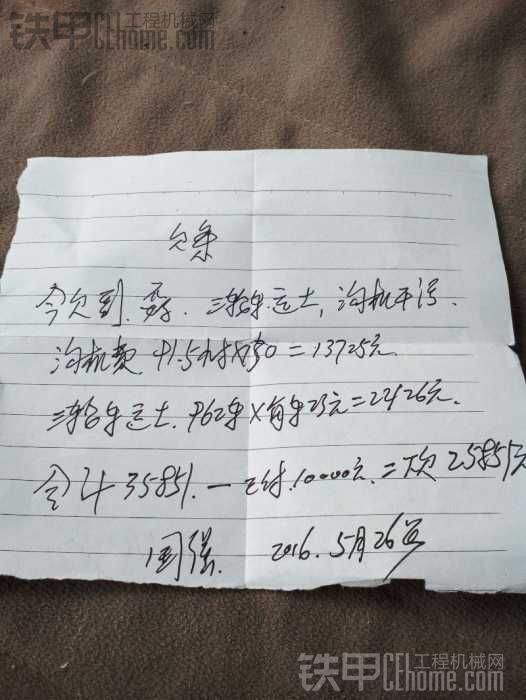 铁甲 工程机械网
CEhome.com
欠条
今欠到. 三轮车运土, 沟机干活.
沟机费 91.5小时X150=13725元
三轮车运土. 962车X每车23元=22126元.
合计35851. 一已付10000元.=下欠25851元
周强. 2016.5月26号
铁甲 工程机械网
CEhome.com